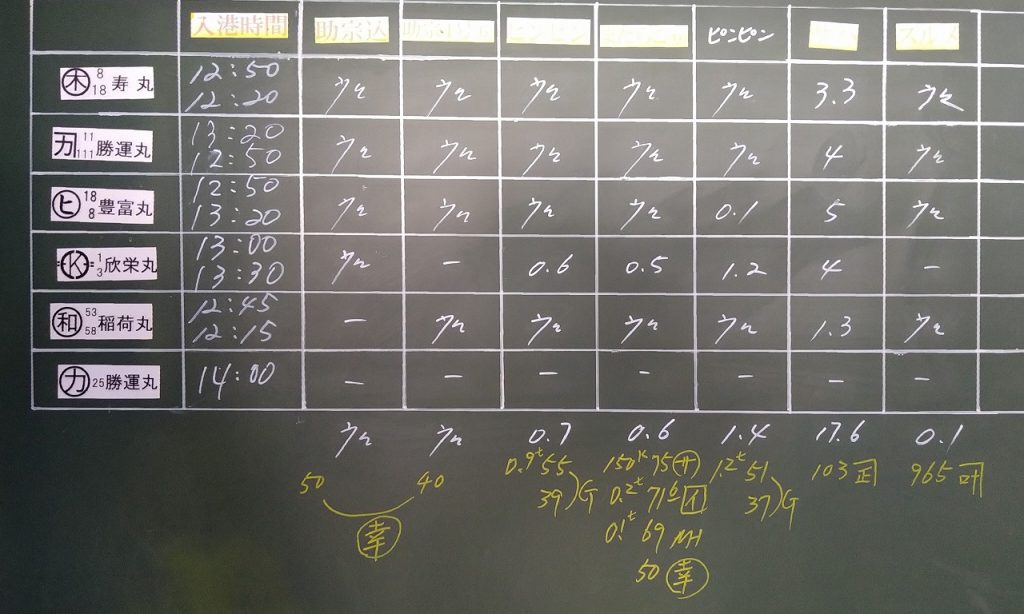 入港時間 助宗込 ピンピン スルメ
木 8 18 寿丸 12:50 12:20 ウレ ウレ ウレ ウレ ウレ 3.3 ウレ
カ 11 111 勝運丸 13:20 12:50 ウレ ウレ ウレ ウレ ウレ 4 ウレ
ヒ 18 8 豊富丸 12:50 13:20 ウレ ウレ ウレ ウレ 0.1 5 ウレ
K 1 3 欣栄丸 13:00 13:30 ウレ - 0.6 0.5 1.2 4 -
和 53 58 稲荷丸 12:45 12:15 - ウレ ウレ ウレ ウレ 1.3 ウレ
カ 25 勝運丸 14:00 - - - - - - -
ウレ ウレ 0.7 0.6 1.4 17.6 0.1
50 40 0.9t 55 150K 75 サ 1.2t 51 103 正 965 叶
39 G 0.2t 71 イ 37 G
幸 0.1t 69 MH
50 幸